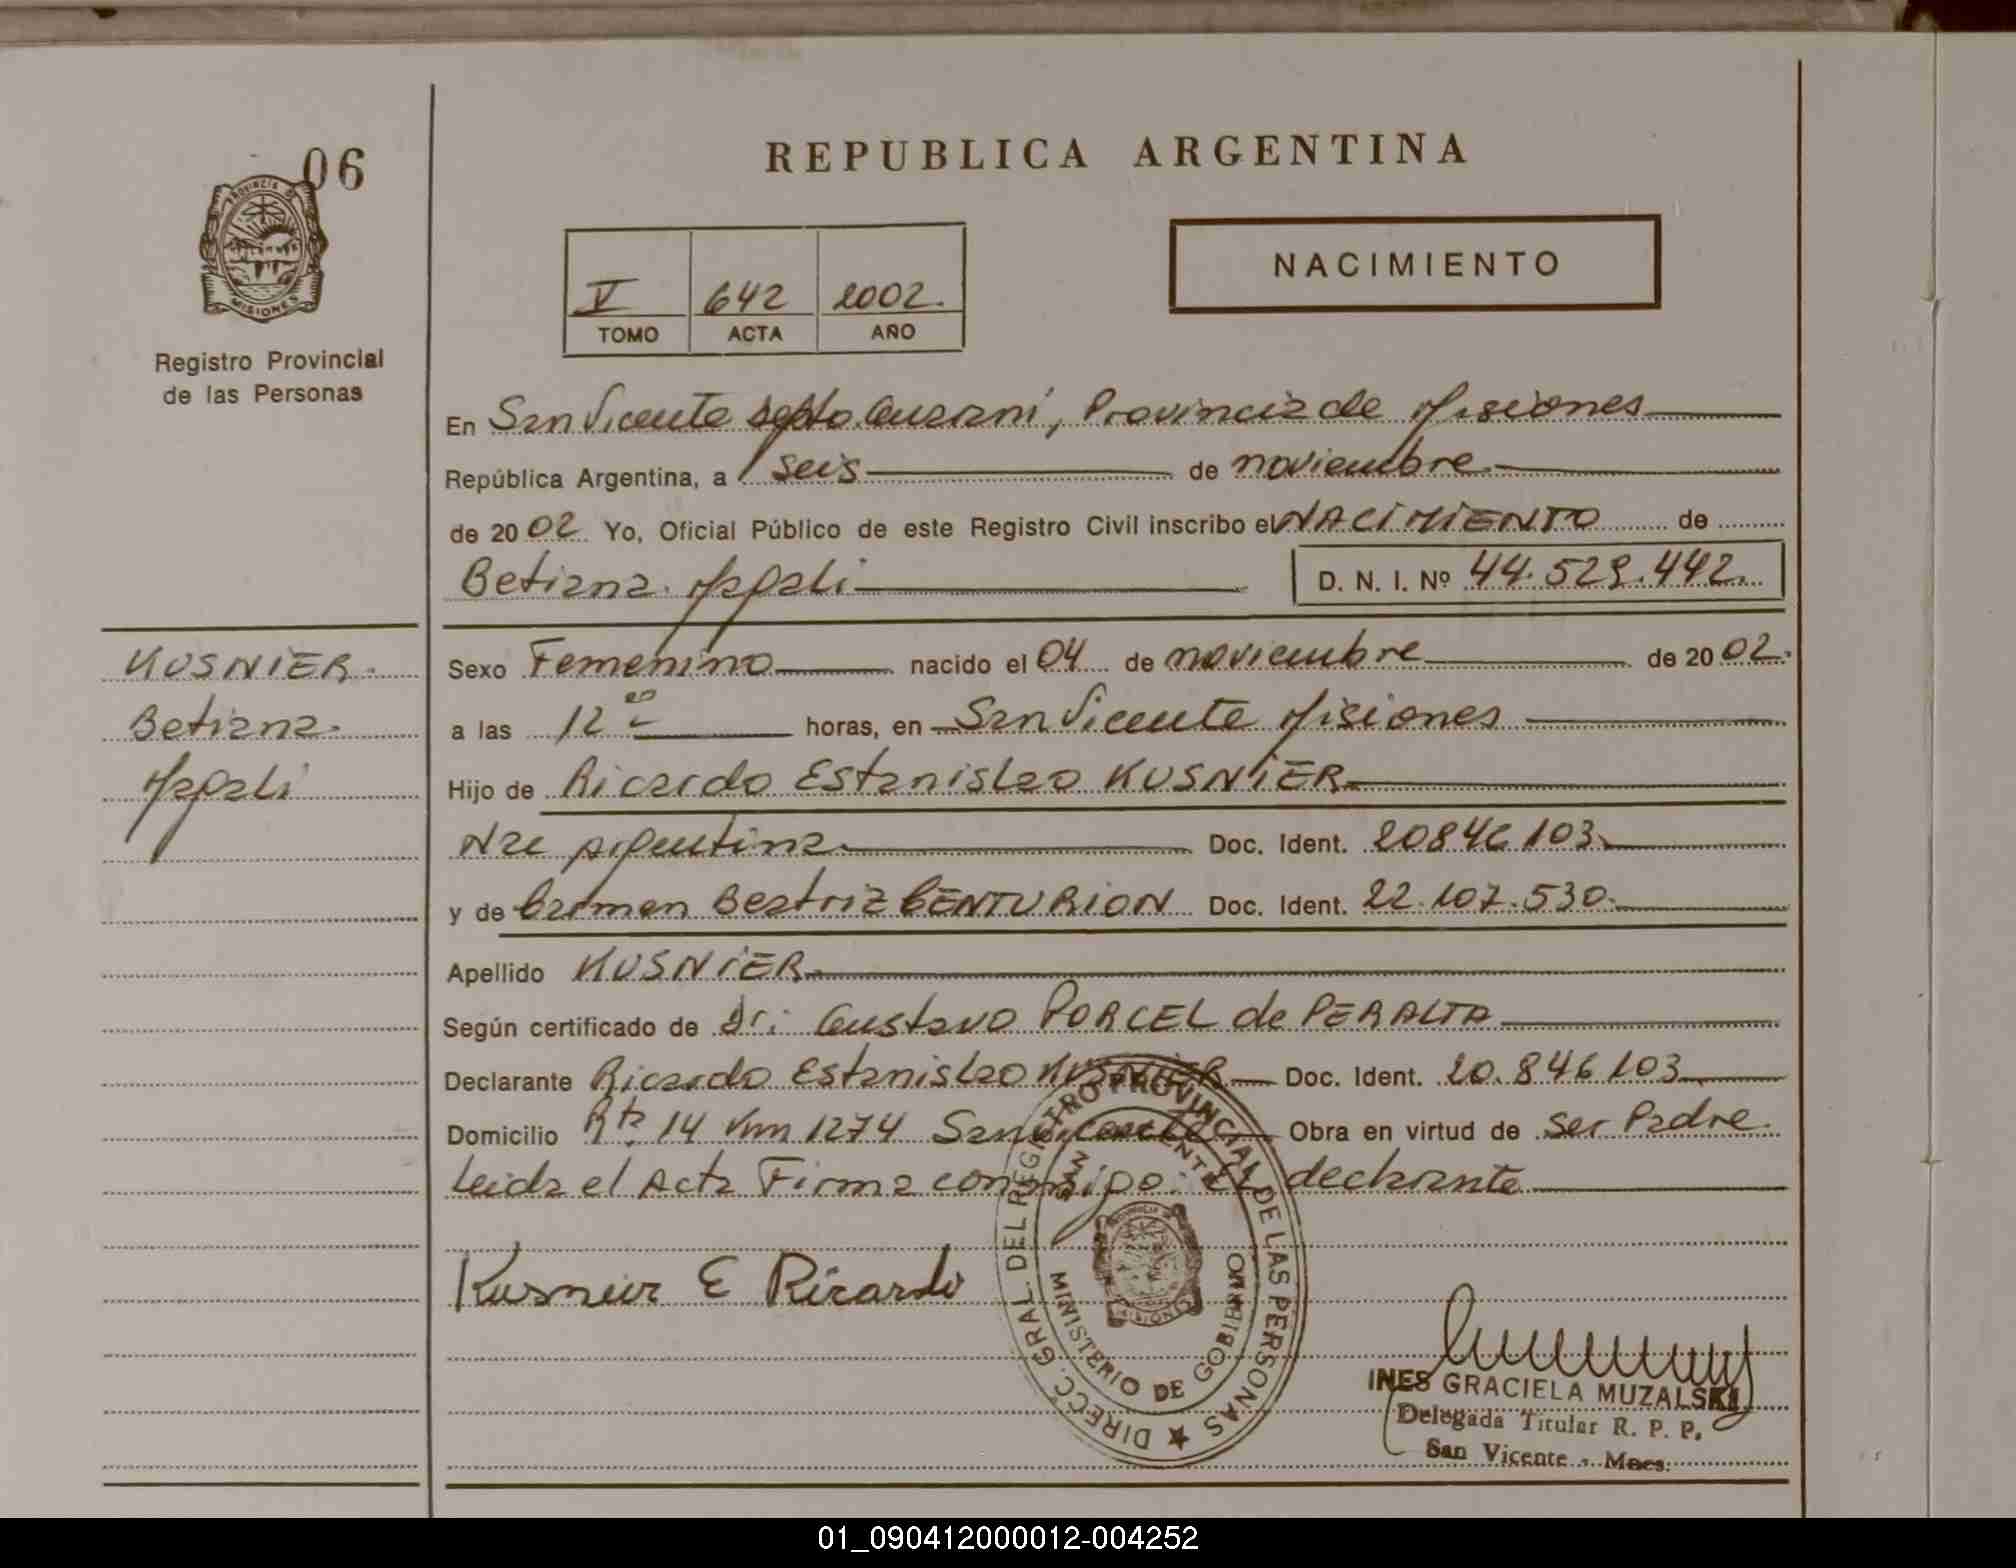 06
PROVINCIA DE
MISIONES
Registro Provincial
de las Personas
REPUBLICA ARGENTINA
V 642 2002.
TOMO ACTA AÑO
NACIMIENTO
En San Vicente Depto. Guaraní, Provincia de Misiones
República Argentina, a seis de noviembre
de 2002 Yo, Oficial Público de este Registro Civil inscribo el NACIMIENTO de
Betiana Magali
D. N. I. Nº 44.529.442.
KUSNIER
Betiana
Magali
Sexo Femenino nacido el 04 de noviembre de 2002.
a las 12 00 horas, en San Vicente Misiones
Hijo de Ricardo Estanislao KUSNIER
Nac Argentina Doc. Ident. 20846103
y de Carmen Beatriz CENTURION Doc. Ident. 22.107.530
Apellido KUSNIER
Según certificado de Dr. Gustavo PORCEL de PERALTA
Declarante Ricardo Estanislao KUSNIER Doc. Ident. 20.846103
Domicilio Rta. 14 Km 1274 San Vicente Obra en virtud de ser Padre
Leida el Acta Firma conmigo: El declarante
Kusnier E Ricardo
DIRECC. GRAL. DEL REGISTRO PROVINCIAL DE LAS PERSONAS
SAN VICENTE
MINISTERIO DE GOBIERNO
MISIONES
INES GRACIELA MUZALSKI
Delegada Titular R. P. P.
San Vicente - Mnes.
01_090412000012-004252